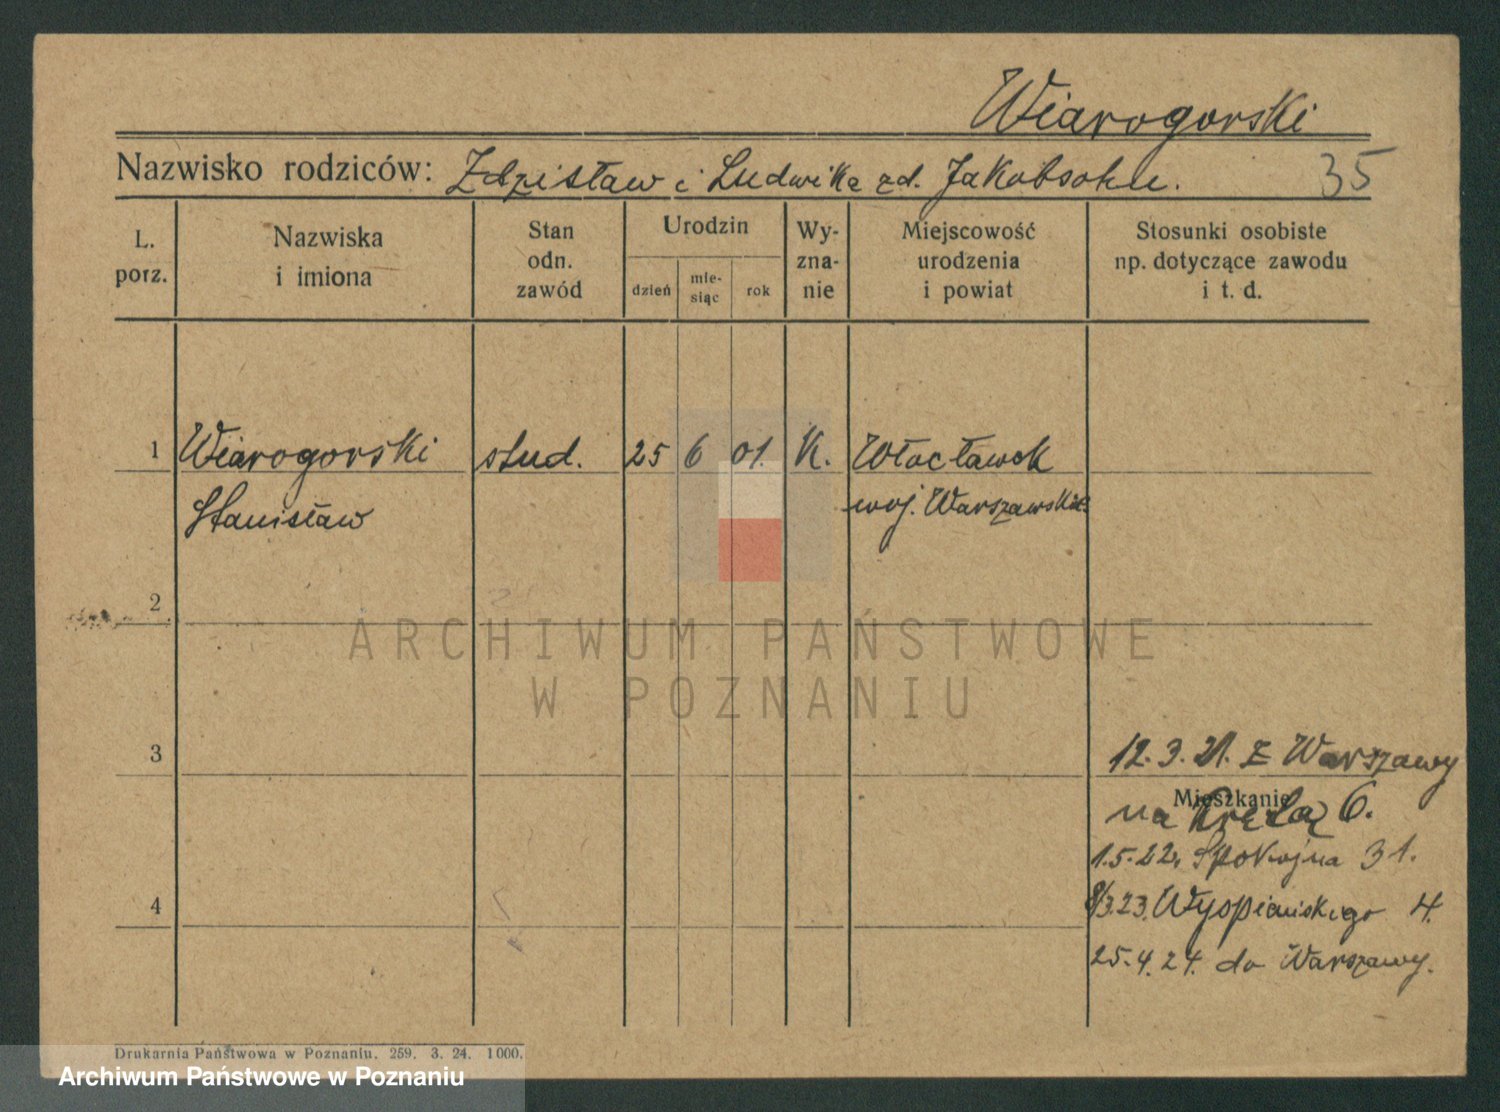 Wiarogorski
Nazwisko rodziców: Zdzisław i Ludwika zd. Jakobsohn. 35
L. porz.
Nazwiska i imiona
Stan odn. zawód
Urodzin
dzień
mie-siąc
rok
Wy-zna-nie
Miejscowość urodzenia i powiat
Stosunki osobiste np. dotyczące zawodu i t. d.
1 Wiarogorski stud. 25 6 01. K. Włocławek
Stanisław woj. Warszawskie
2
ARCHIWUM PAŃSTWOWE
W POZNANIU
3 12.3.21. z Warszawy
Mieszkanie
na Krętą 6.
1.5.22. Spokojna 31.
4 8/3.23. Wyspiańskiego 4.
25.4.24. do Warszawy.
Drukarnia Państwowa w Poznaniu. 259. 3. 24. 1000.
Archiwum Państwowe w Poznaniu